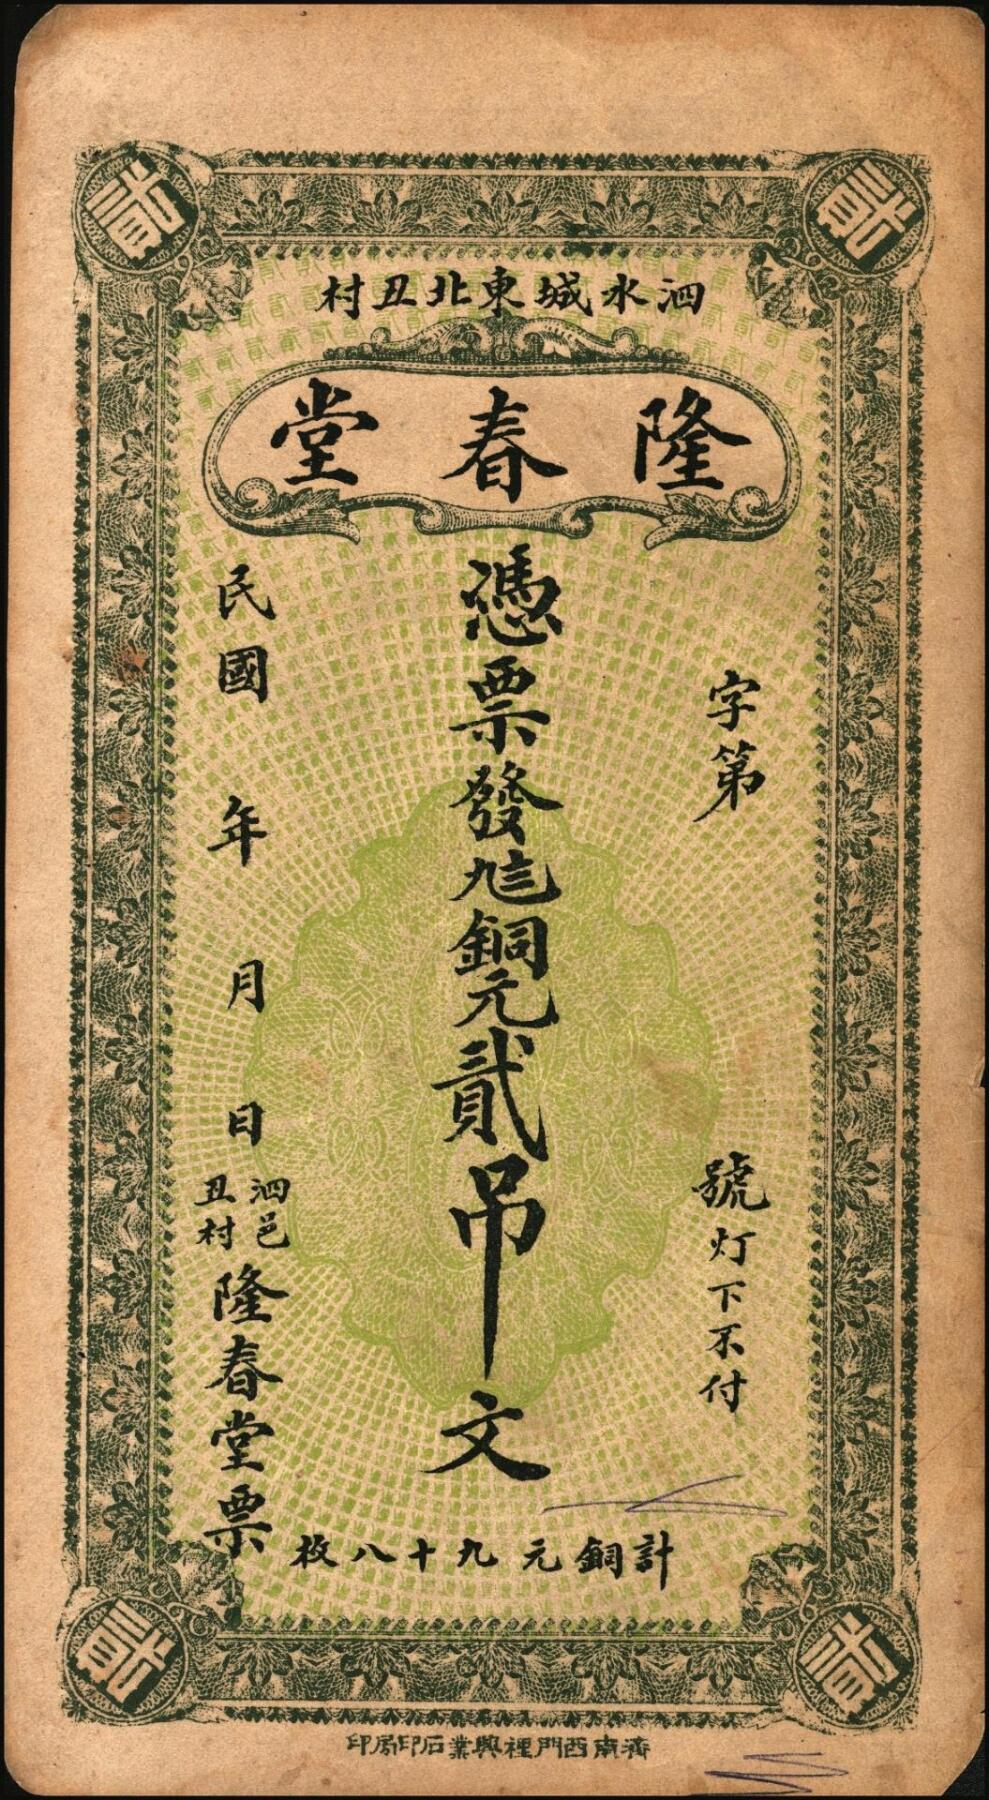 貳 貳
泗水城東北丑村
隆春堂
字第 號灯下不付
憑票發九二銅元貳吊文
民國 年 月 日
泗邑
丑村
隆春堂票
計銅元九十八枚
貳 貳
濟南西門裡興業石印局印